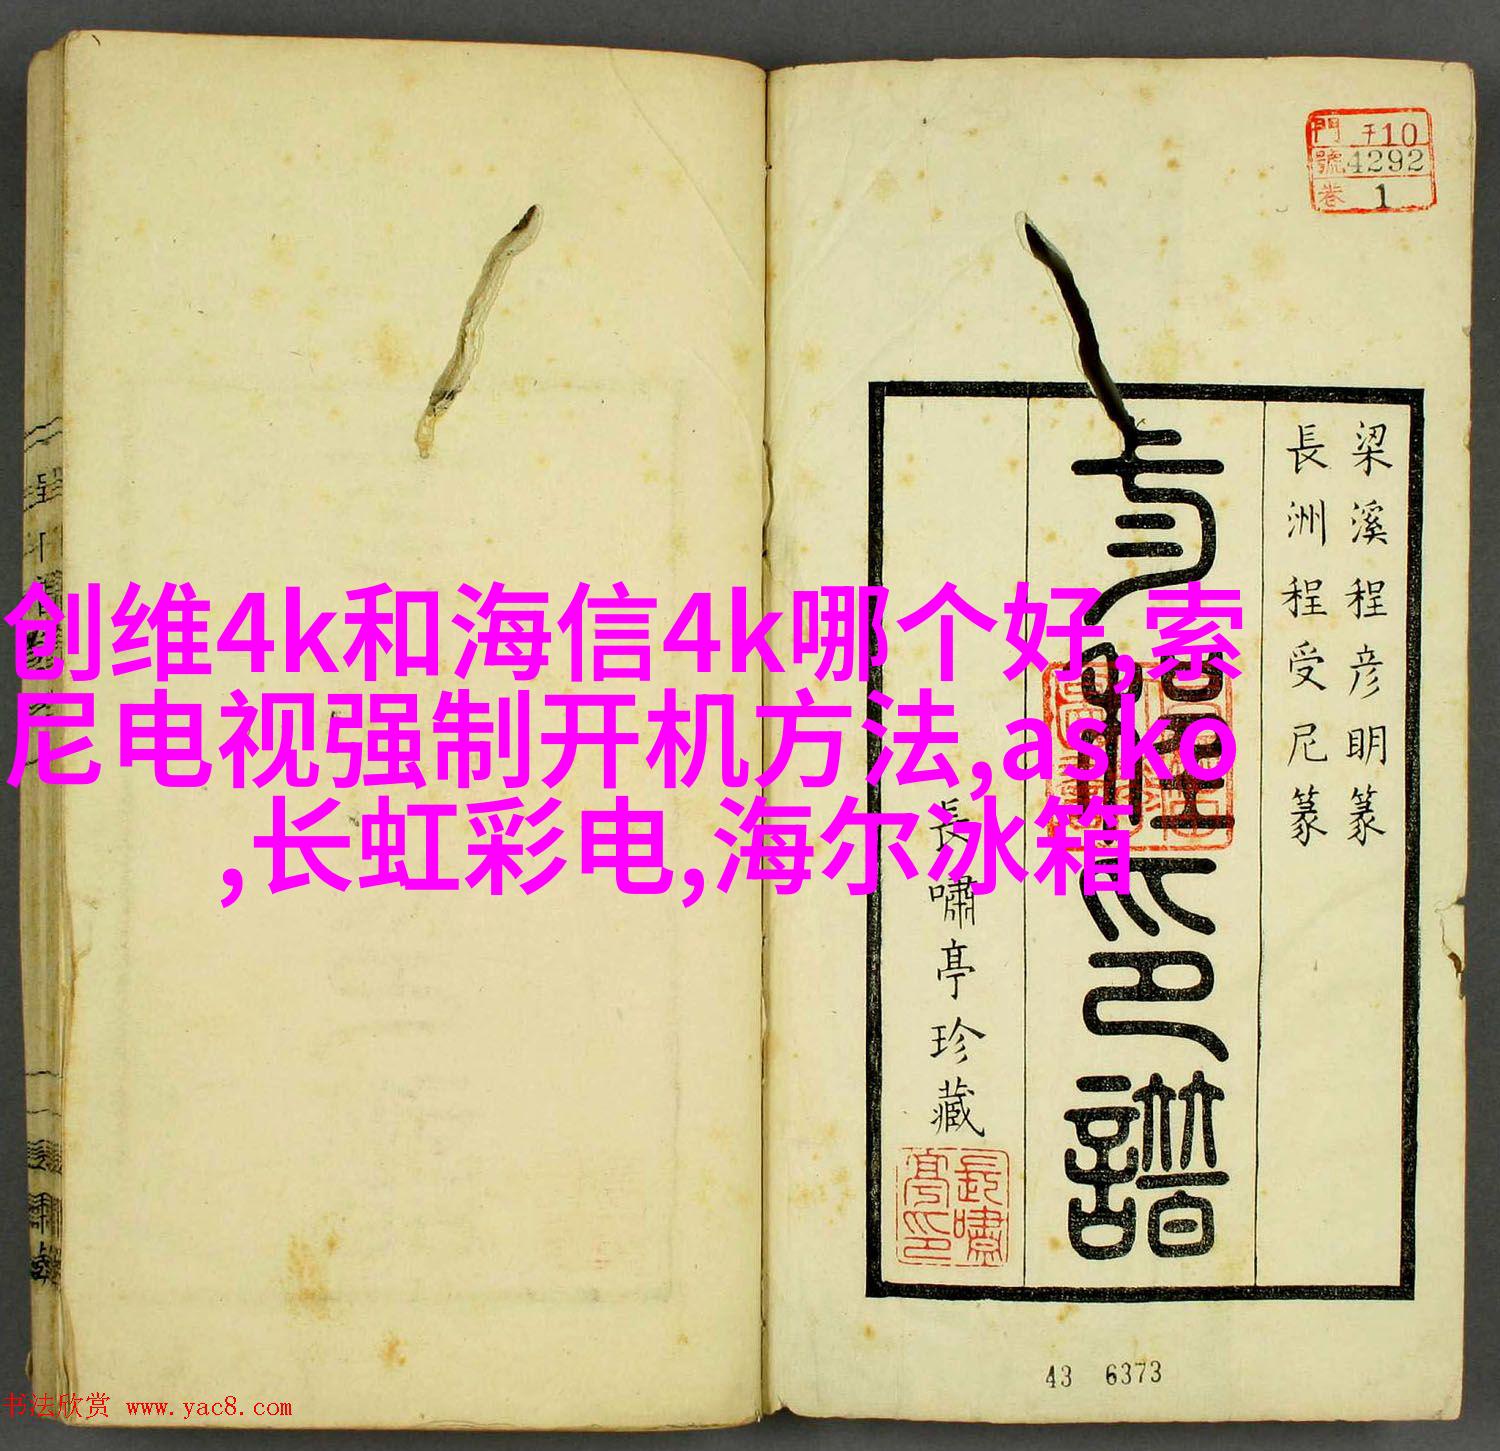 門 〒10
號 4292
卷 1
梁溪程彦明篆
長洲程受尼篆
印譜
長嘯亭珍藏
長嘯亭印
创维4k和海信4k哪个好,索
尼电视强制开机方法,asko
,长虹彩电,海尔冰箱
43 6373
书法欣赏 www.yac8.com